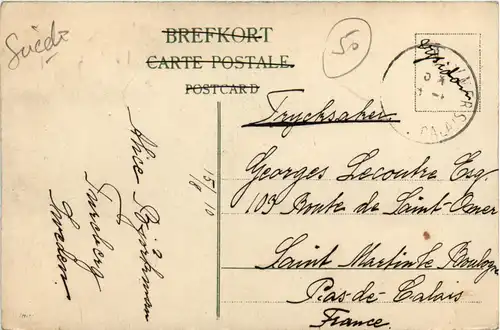 Suède
BREFKORT
CARTE POSTALE.
POSTCARD
50
Trycksaker
Georges Lecoutre Esq.
109 Route de Saint-Omer
Saint Martinte Boulogne
Pas-de-Calais
France.
15/10
18
Alice Björkman
Tureberg
Sweden.
CALAIS